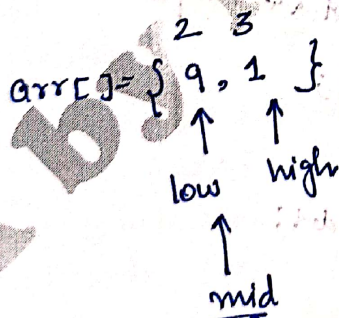 2 3
arr[]= { 9, 1 }
↑ ↑
low high
↑
mid
by